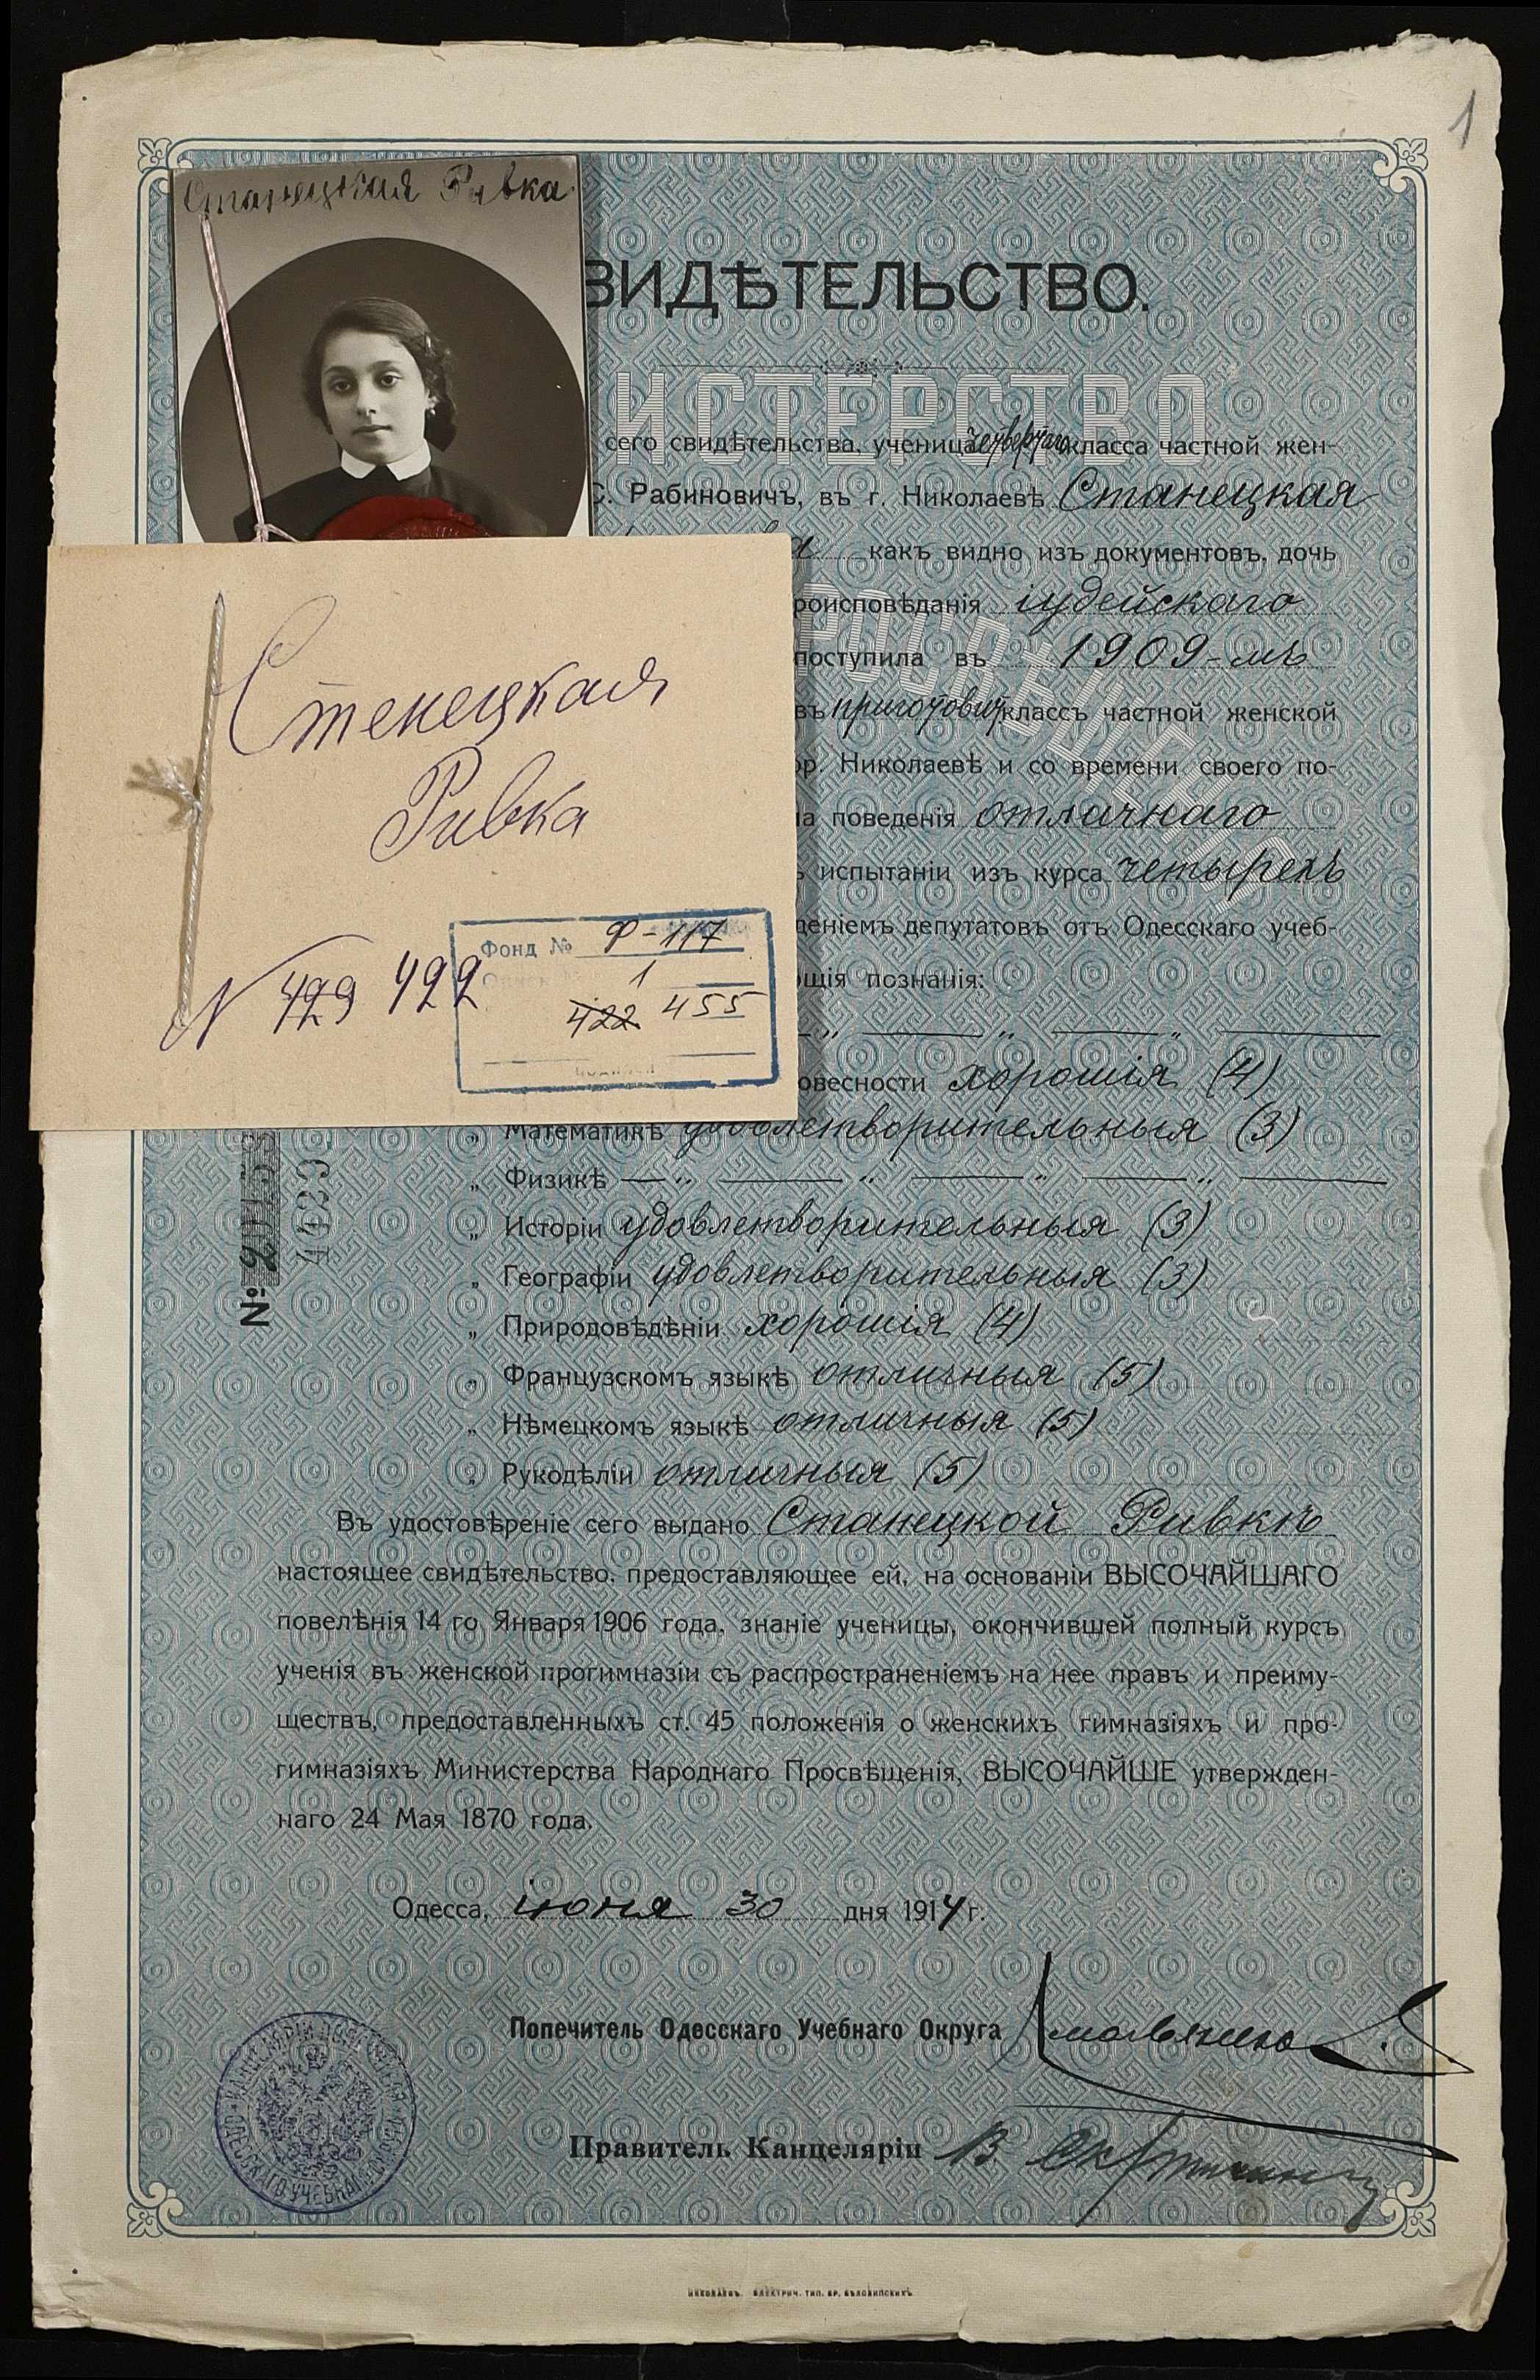 1
Станецкая Ривка.
ВИДѢТЕЛЬСТВО.
ИСТЕРСТВО
сего свидѣтельства, ученица четвертаго класса частной жен-
С. Рабиновичъ, въ г. Николаевѣ Станецкая
какъ видно изъ документовъ, дочь
роисповѣданія іудейскаго
поступила въ 1909-мъ
въ приготовит классъ частной женской
ор. Николаевѣ и со времени своего по-
ла поведенія отличнаго
ъ испытаніи изъ курса четырехъ
деніемъ депутатовъ отъ Одесскаго учеб-
ющія познанія:
овесности хорошія (4)
„ Математикѣ удовлетворительныя (3)
„ Физикѣ — „ — „ — „ — „ —
„ Исторіи удовлетворительныя (3)
„ Географіи удовлетворительныя (3)
„ Природовѣдѣніи хорошія (4)
„ Французскомъ языкѣ отличныя (5)
„ Нѣмецкомъ языкѣ отличныя (5)
„ Рукодѣліи отличныя (5)
Въ удостовѣреніе сего выдано Станецкой Ривкѣ
настоящее свидѣтельство, предоставляющее ей, на основаніи ВЫСОЧАЙШАГО
повелѣнія 14 го Января 1906 года, знаніе ученицы, окончившей полный курсъ
ученія въ женской прогимназіи съ распространеніемъ на нее правъ и преиму-
ществъ, предоставленныхъ ст. 45 положенія о женскихъ гимназіяхъ и про-
гимназіяхъ Министерства Народнаго Просвѣщенія, ВЫСОЧАЙШЕ утвержден-
наго 24 Мая 1870 года.
Одесса, іюня 30 дня 1914 г.
Попечитель Одесскаго Учебнаго Округа
Правитель Канцеляріи В.
Стенецкая
Ривка
N 429 422
Фонд № Ф-117
1
422 455
№
4429
НИКОЛАЕВЪ. ЭЛЕКТРИЧ. ТИП. БР. БѢЛОЛИПСКИХЪ